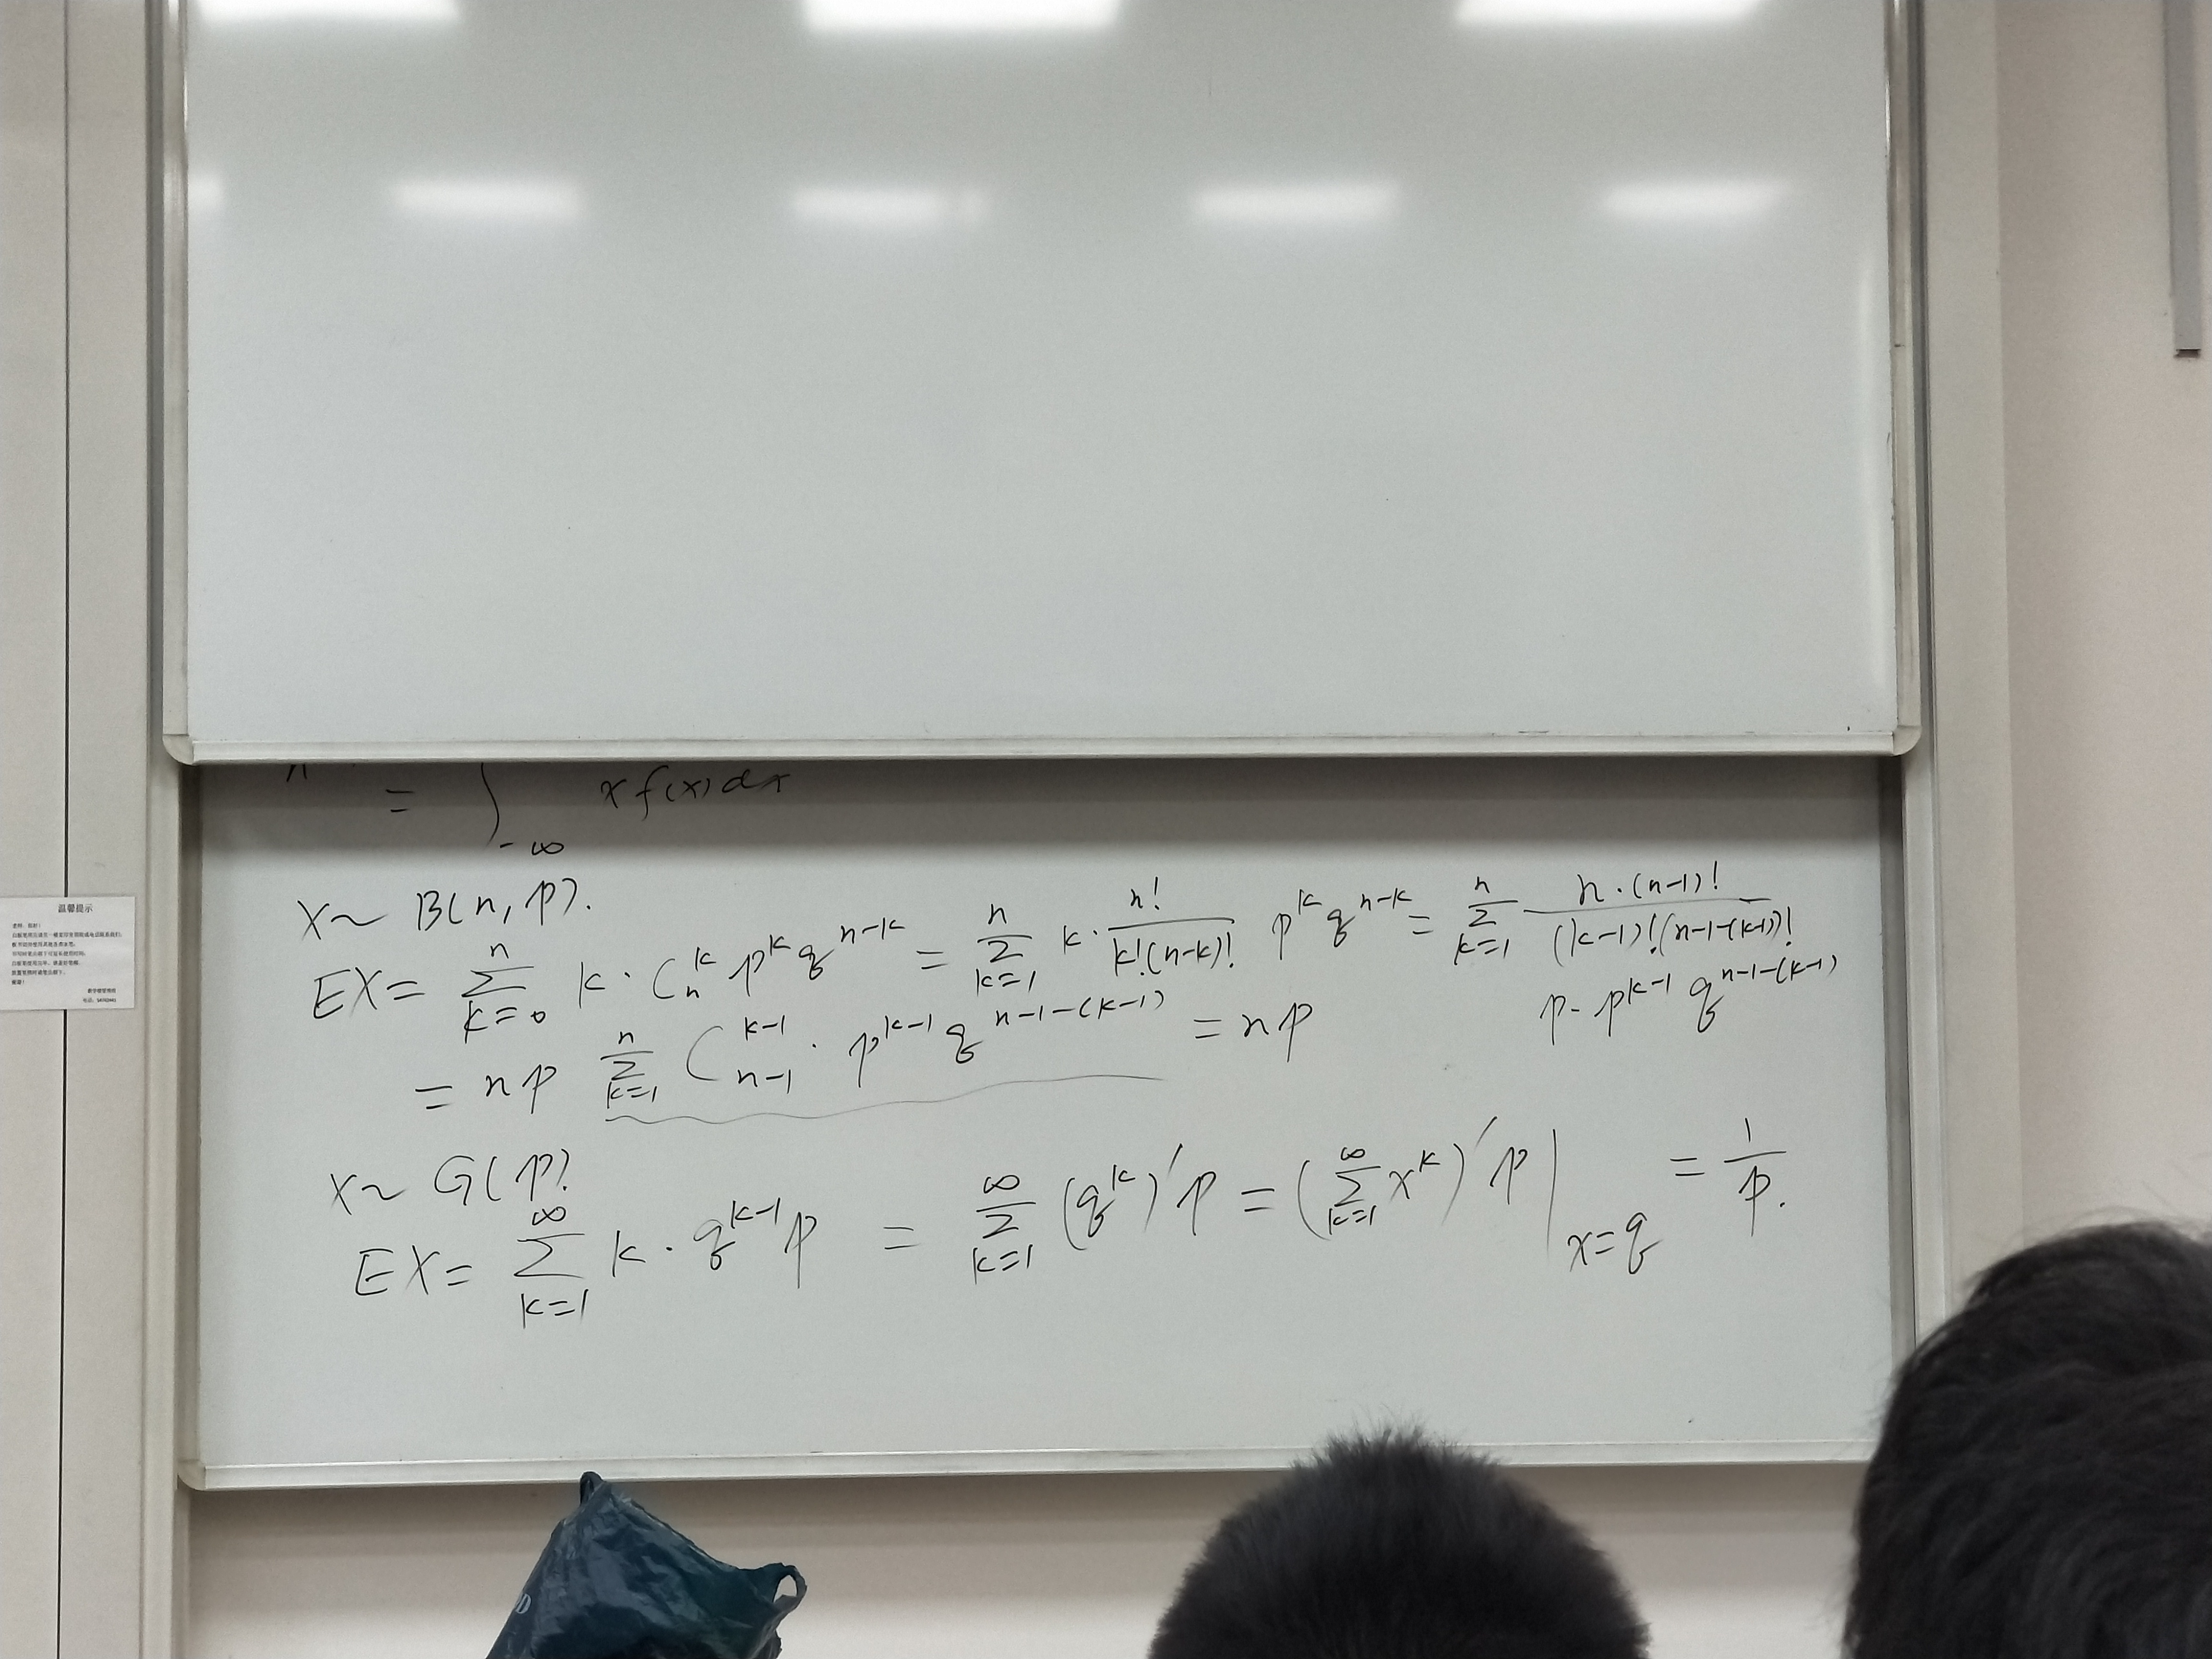 = ∫_{-∞} x f(x) dx
X ~ B(n, p).
EX = \sum_{k=0}^{n} k · C_n^k p^k q^{n-k} = \sum_{k=1}^{n} k · \frac{n!}{k!(n-k)!} p^k q^{n-k} = \sum_{k=1}^{n} \frac{n·(n-1)!}{(k-1)!(n-1-(k-1))!}
p · p^{k-1} q^{n-1-(k-1)}
= np \sum_{k=1}^{n} C_{n-1}^{k-1} · p^{k-1} q^{n-1-(k-1)} = np
X ~ G(p).
EX = \sum_{k=1}^{∞} k · q^{k-1} p = \sum_{k=1}^{∞} (q^k)' p = (\sum_{k=1}^{∞} x^k)' p |_{x=q} = \frac{1}{p}.
温馨提示